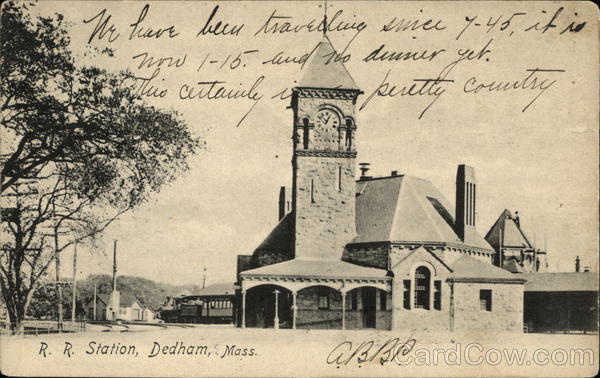 We have been travelling since 7-45, it is
now 1-15. and no dinner yet.
This certainly is peretty country
R. R. Station, Dedham, Mass.
ABBR
CardCow.com